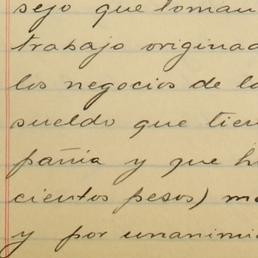 sejo que toman
trabajo originad
los negocios de la
sueldo que tien
pañia y que h
cientos pesos) m
y por unanimi